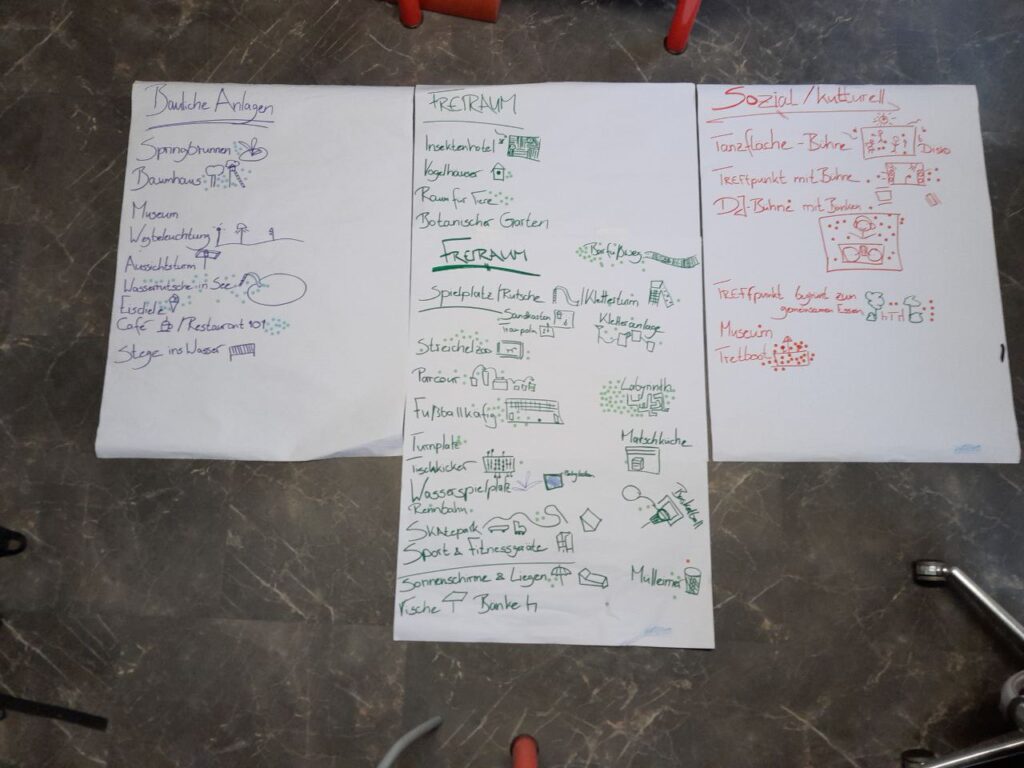 Bauliche Anlagen
Springbrunnen
Baumhaus
Museum
Wegbeleuchtung
Aussichtsturm
Wasserrutsche in See
Eisdiele
Café /Restaurant
Stege ins Wasser
FREIRAUM
Insektenhotel
Vogelhäuser
Raum für Tiere
Botanischer Garten
FREIRAUM
Barfußweg
Spielplatz/Rutsche /Kletterturm
Sandkasten
Trampolin
Kletteranlage
Streichelzoo
Parcour
Labyrinth
Fußballkäfig
Turnplatz
Matschküche
Tischkicker
Wasserspielplatz
Rennbahn
Basketball
Skatepark
Sport & Fitnessgeräte
Sonnenschirme & Liegen
Mülleimer
Tische Bänke
Sozial/kulturell
Tanzfläche-Bühne Disko
Treffpunkt mit Bühne
DJ-Bühne mit Bänken
Treffpunkt begrünt zum
gemeinsamen Essen
Museum
Tretboot